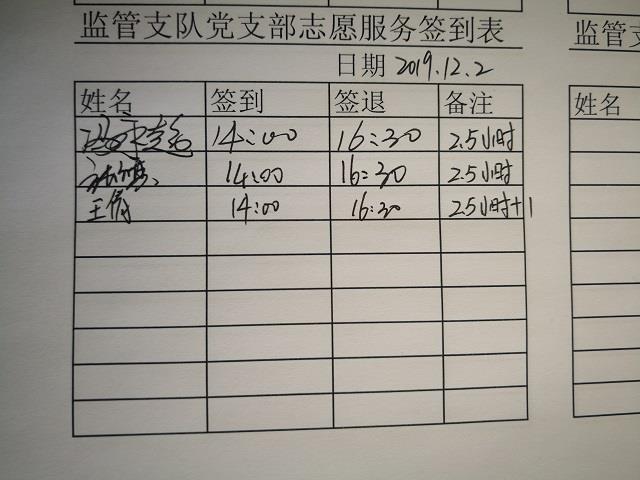 监管支队党支部志愿服务签到表
日期 2019.12.2
姓名 签到 签退 备注
14:00 16:30 2.5小时
14:00 16:30 2.5小时
王 14:00 16:30 2.5小时+1
监管支
姓名